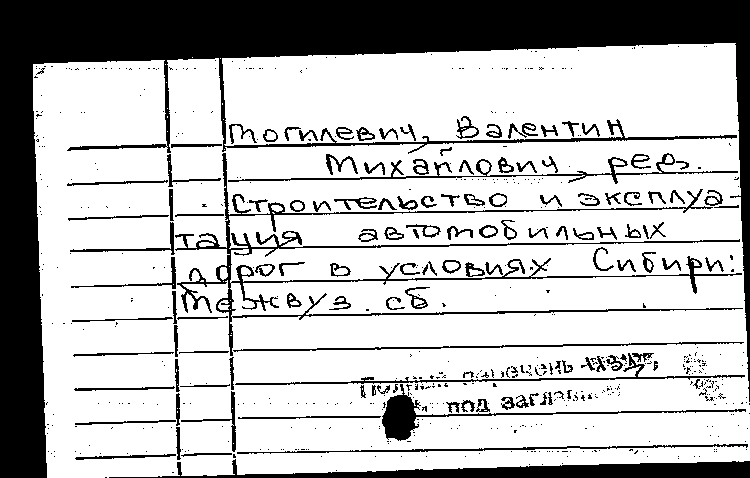 Могилевич, Валентин
Михайлович, ред.
Строительство и эксплуа-
тация автомобильных
дорог в условиях Сибири:
Межвуз. сб.
Полный перечень
под заглавием